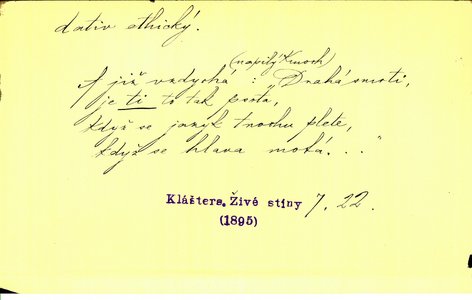 dativ ethický.
(napilý Kmoch)
A již vzdychá: „Drahá
je ti to tak posta,
když se jazyk trochu plete,
když se hlava motá..."
Klášters. Živé stiny 7. 22.
(1895)